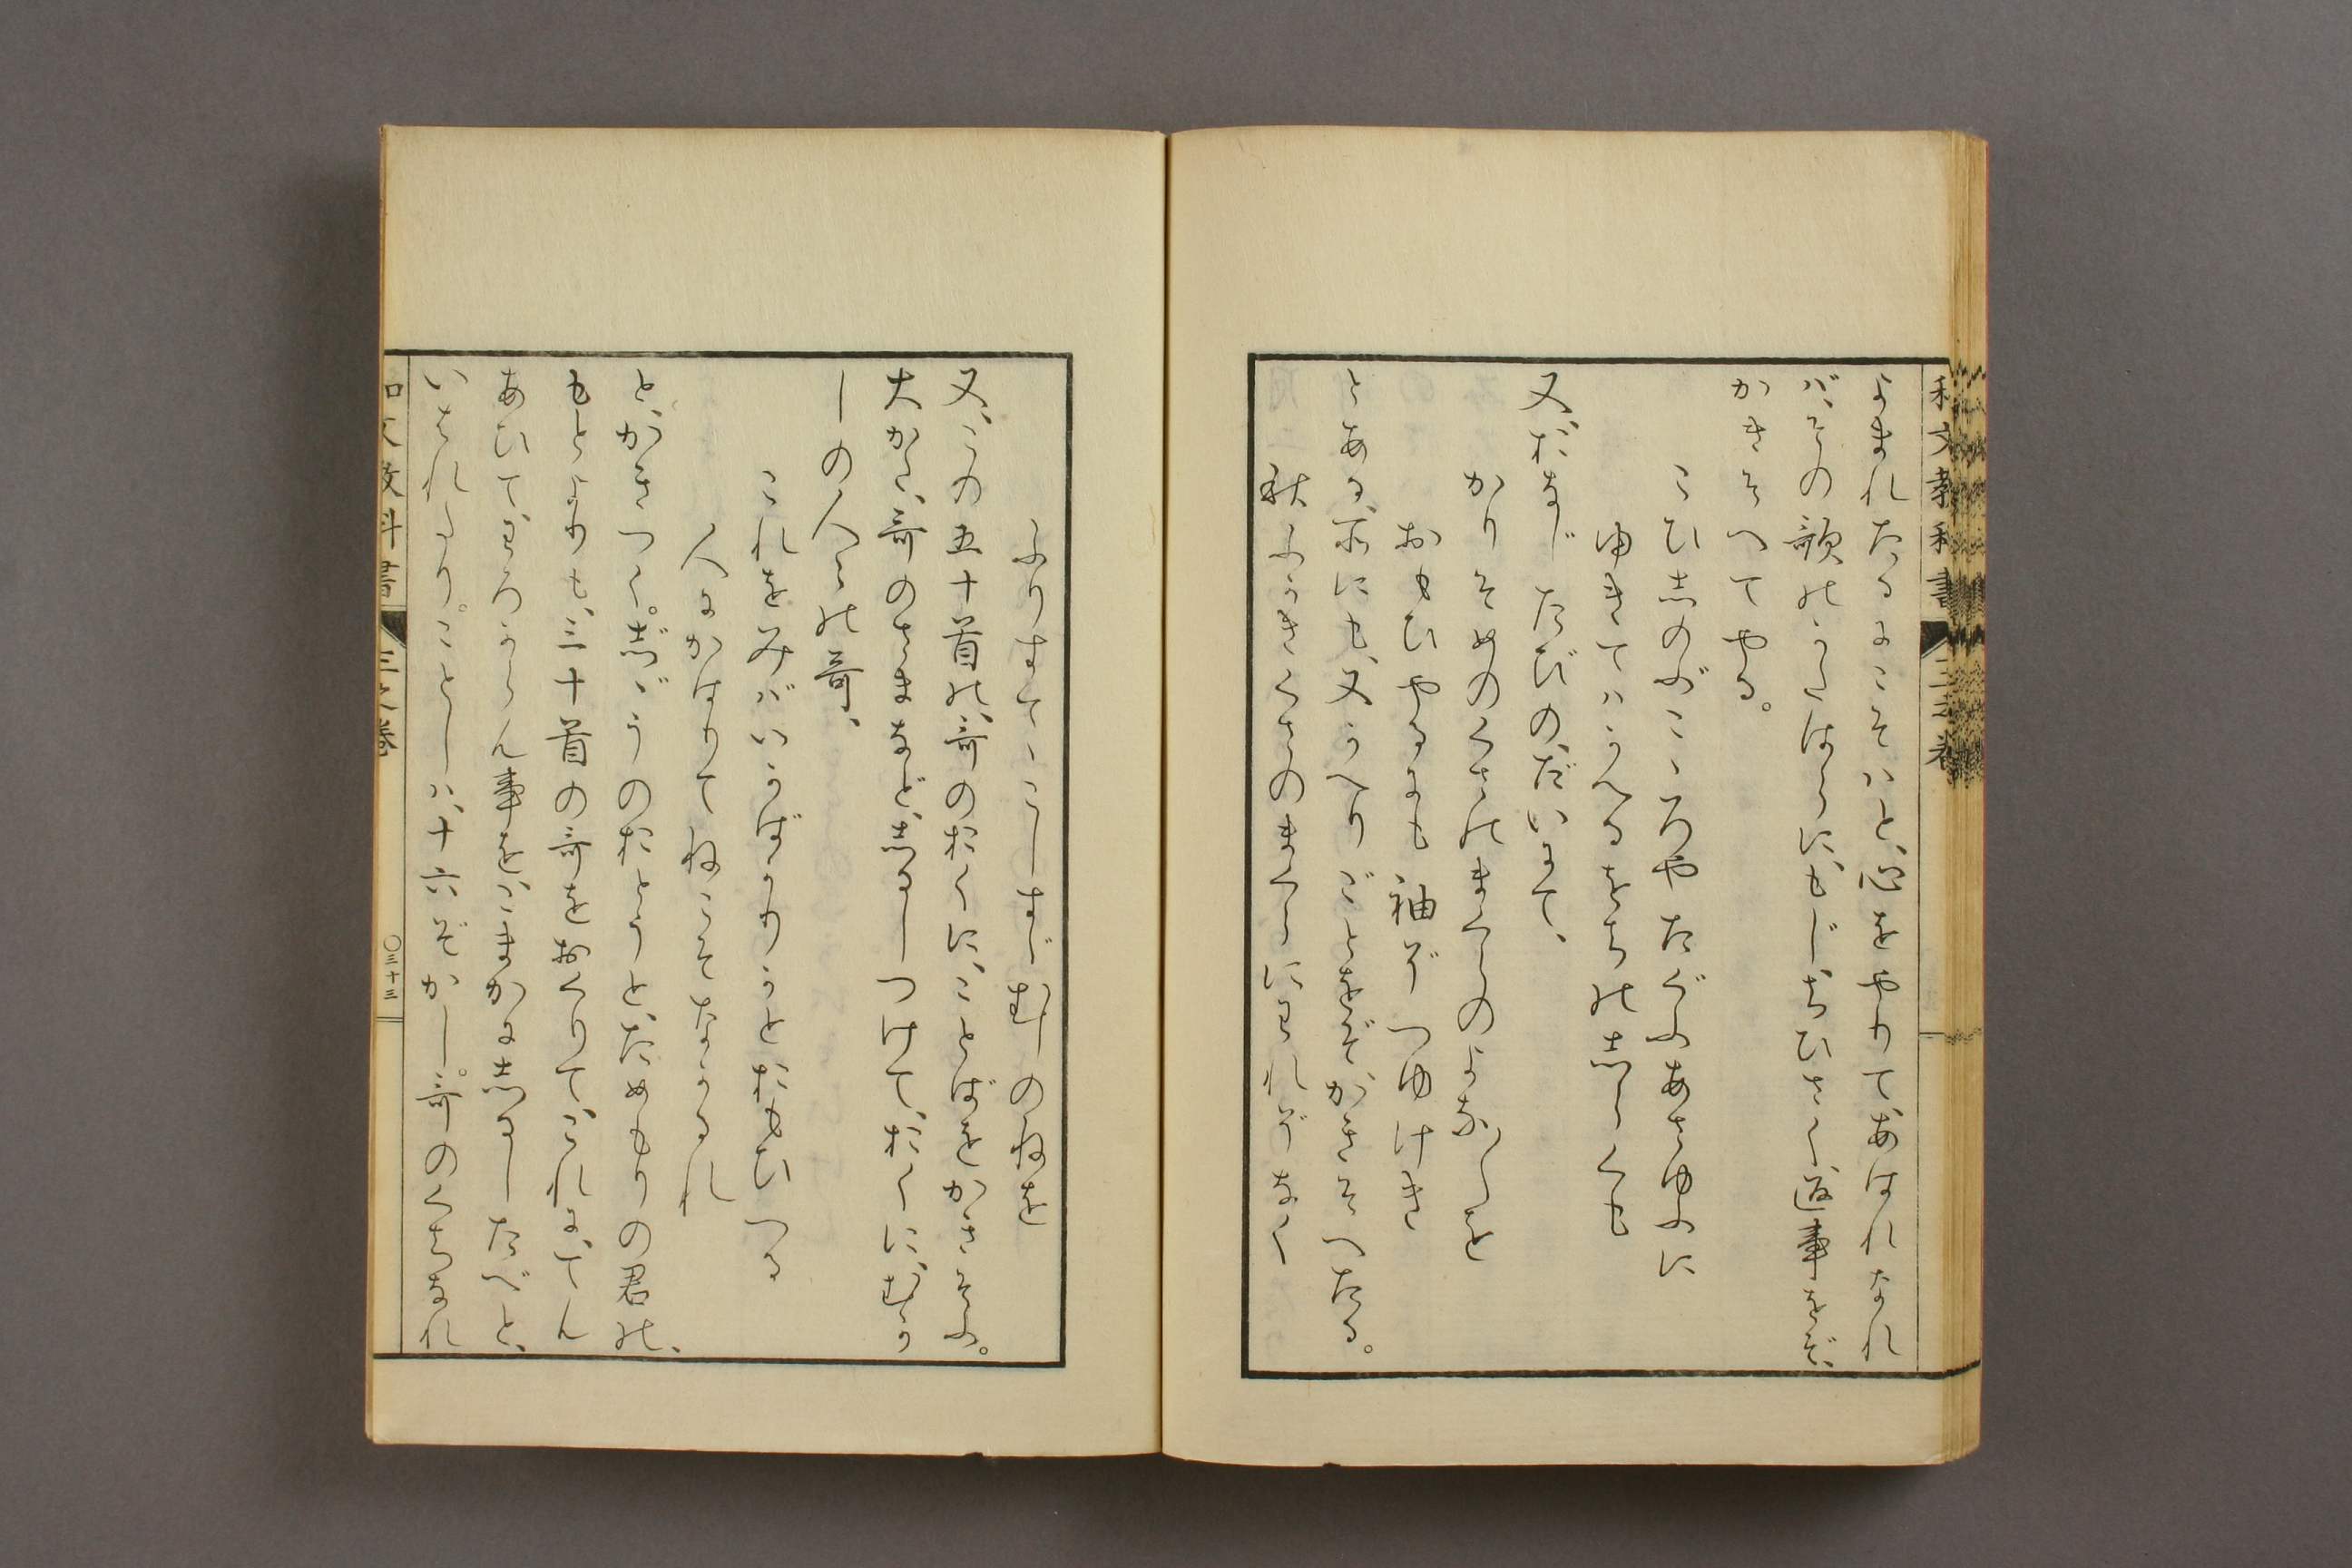 和文教科書 三之巻
よまれたるにこそハと、心をやりて、あはれなれ
バ、その歌のかたはらに、もじちひさく、返事をぞ、
かきそへてやる。
こひ志のぶこゝろやたぐふあさゆふに
ゆきてハかへるをちの志らくも
又、おなじたびのだいにて、
かりそめのくさのまくらのよな〳〵を
おもひやるにも袖ぞつゆけき
とある所にも、又かへりごとをぞ、かきそへたる。
秋ふかきくさのまくらにわれぞなく
ふりすてゝこしすゞむしのねを
又、この五十首の、哥のおくに、ことばをかきそふ。
大かた、哥のさまなど、志るしつけて、おくに、むか
しの人々の哥、
これをみバいかばかりかとおもひつる
人にかはりてねこそなかるれ
と、かきつく。志゛ゞうのおとうと、ためもりの君の、
もとよりも、三十首の哥をおくりて、これに、てん
あひて、わろからん事を、こまかに志るしたべと、
いはれたり。ことしハ、十六ぞかし。哥のくちなれ
和文教科書 三之巻 〇三十三